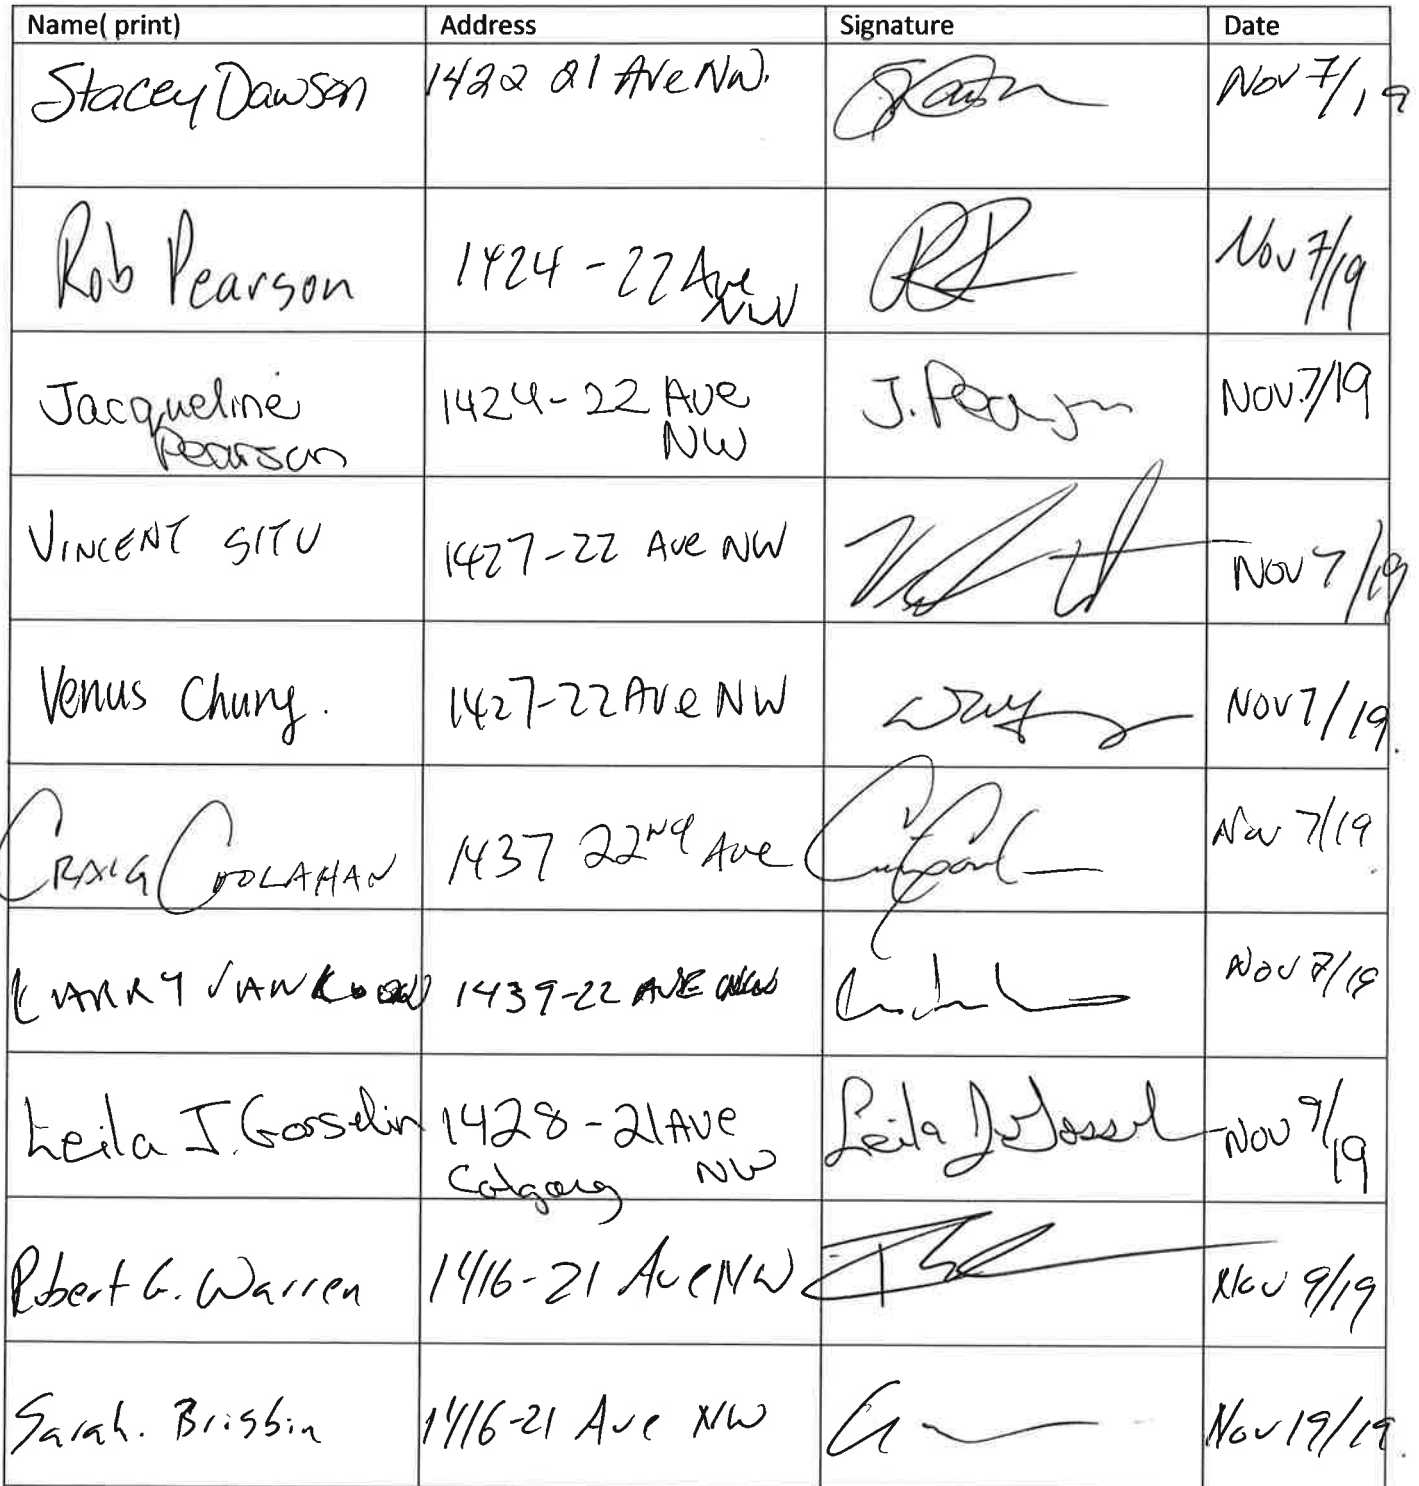 Name( print) Address Signature Date
Stacey Dawson 1422 21 Ave NW. Nov 7/19
Rob Pearson 1424 - 22 Ave Nov 7/19
NW
Jacqueline 1424 - 22 Ave J. Pearson Nov 7/19
Pearson NW
VINCENT SITU 1427-22 Ave NW Nov 7/19
Venus Chung. 1427-22 Ave NW Nov 7/19.
CRAIG COOLAHAN 1437 22nd Ave Nov 7/19
LARRY 1439-22 AVE Nov 7/19
Leila J. Gosselin 1428 - 21 Ave Leila J Gossel Nov 9/19
Calgary NW
Robert G. Warren 1416-21 Ave NW Nov 9/19
Sarah. Brisbin 1416-21 Ave NW Nov 19/19.